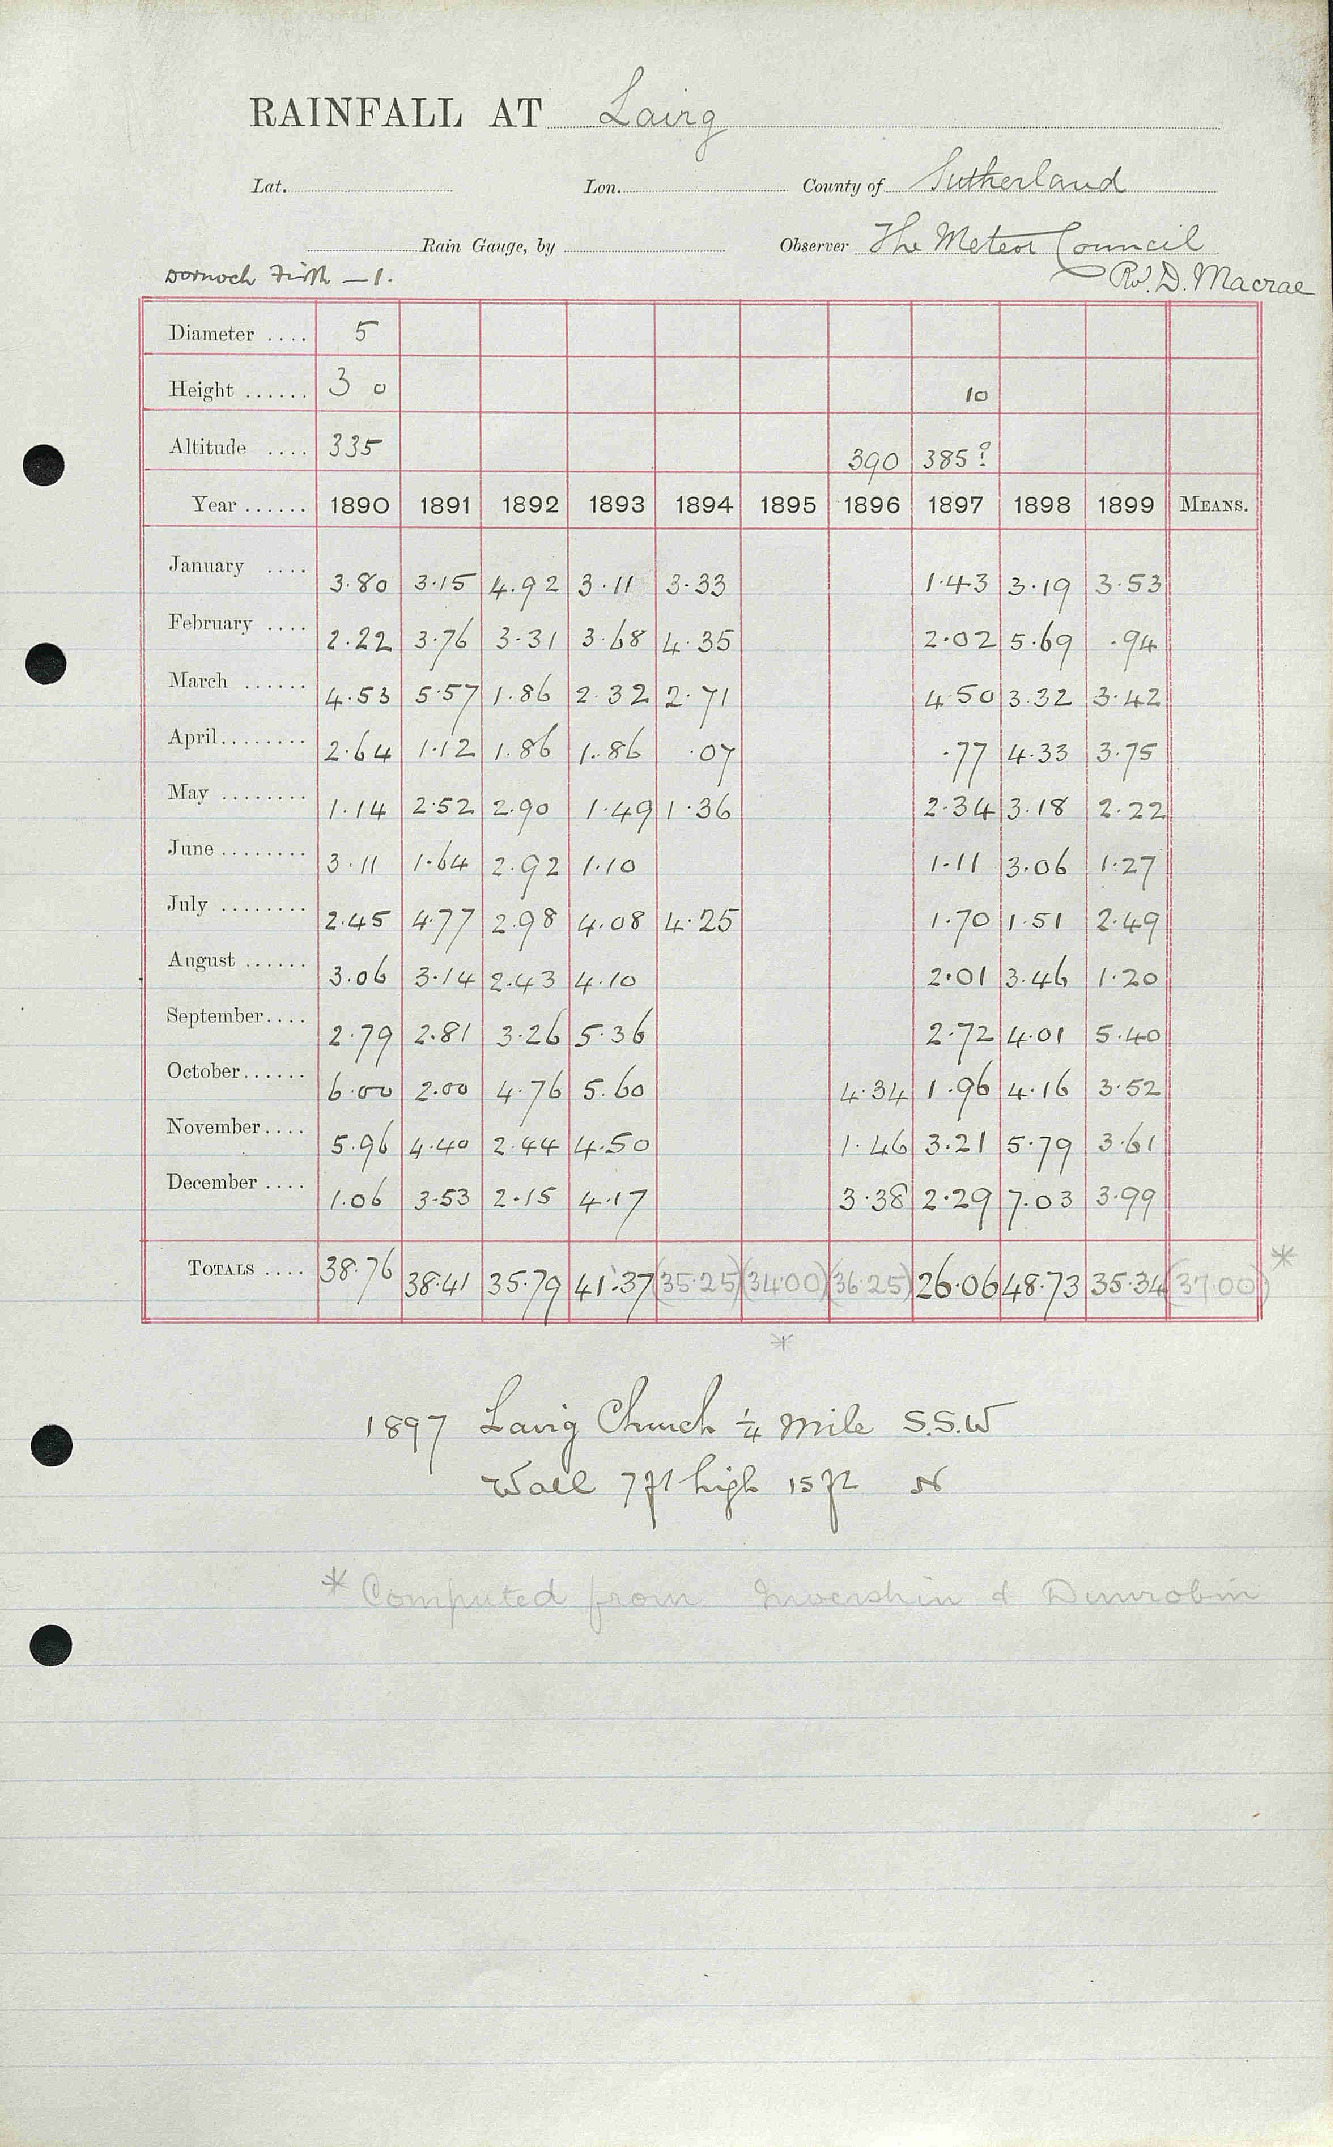 RAINFALL AT Lairg
Lat. Lon. County of Sutherland
Rain Gauge, by Observer The Meteor Council
Dornoch Firth — 1. Rev. D. Macrae
Diameter .... 5
Height ...... 3 0 10
Altitude .... 335 390 385?
Year ...... 1890 1891 1892 1893 1894 1895 1896 1897 1898 1899 MEANS.
January .... 3.80 3.15 4.92 3.11 3.33 1.43 3.19 3.53
February .... 2.22 3.76 3.31 3.68 4.35 2.02 5.69 .94
March ...... 4.53 5.57 1.86 2.32 2.71 4.50 3.32 3.42
April........ 2.64 1.12 1.86 1.86 .07 .77 4.33 3.75
May ........ 1.14 2.52 2.90 1.49 1.36 2.34 3.18 2.22
June ........ 3.11 1.64 2.92 1.10 1.11 3.06 1.27
July ........ 2.45 4.77 2.98 4.08 4.25 1.70 1.51 2.49
August ...... 3.06 3.14 2.43 4.10 2.01 3.46 1.20
September.... 2.79 2.81 3.26 5.36 2.72 4.01 5.40
October...... 6.00 2.00 4.76 5.60 4.34 1.96 4.16 3.52
November.... 5.96 4.40 2.44 4.50 1.46 3.21 5.79 3.61
December .... 1.06 3.53 2.15 4.17 3.38 2.29 7.03 3.99
TOTALS .... 38.76 38.41 35.79 41.37 (35.25) (34.00) (36.25) 26.06 48.73 35.34 (37.00) *
*
1897 Lairg Church ¼ mile S.S.W
Wall 7 ft high 15 ft N
* Computed from Invershin & Dunrobin